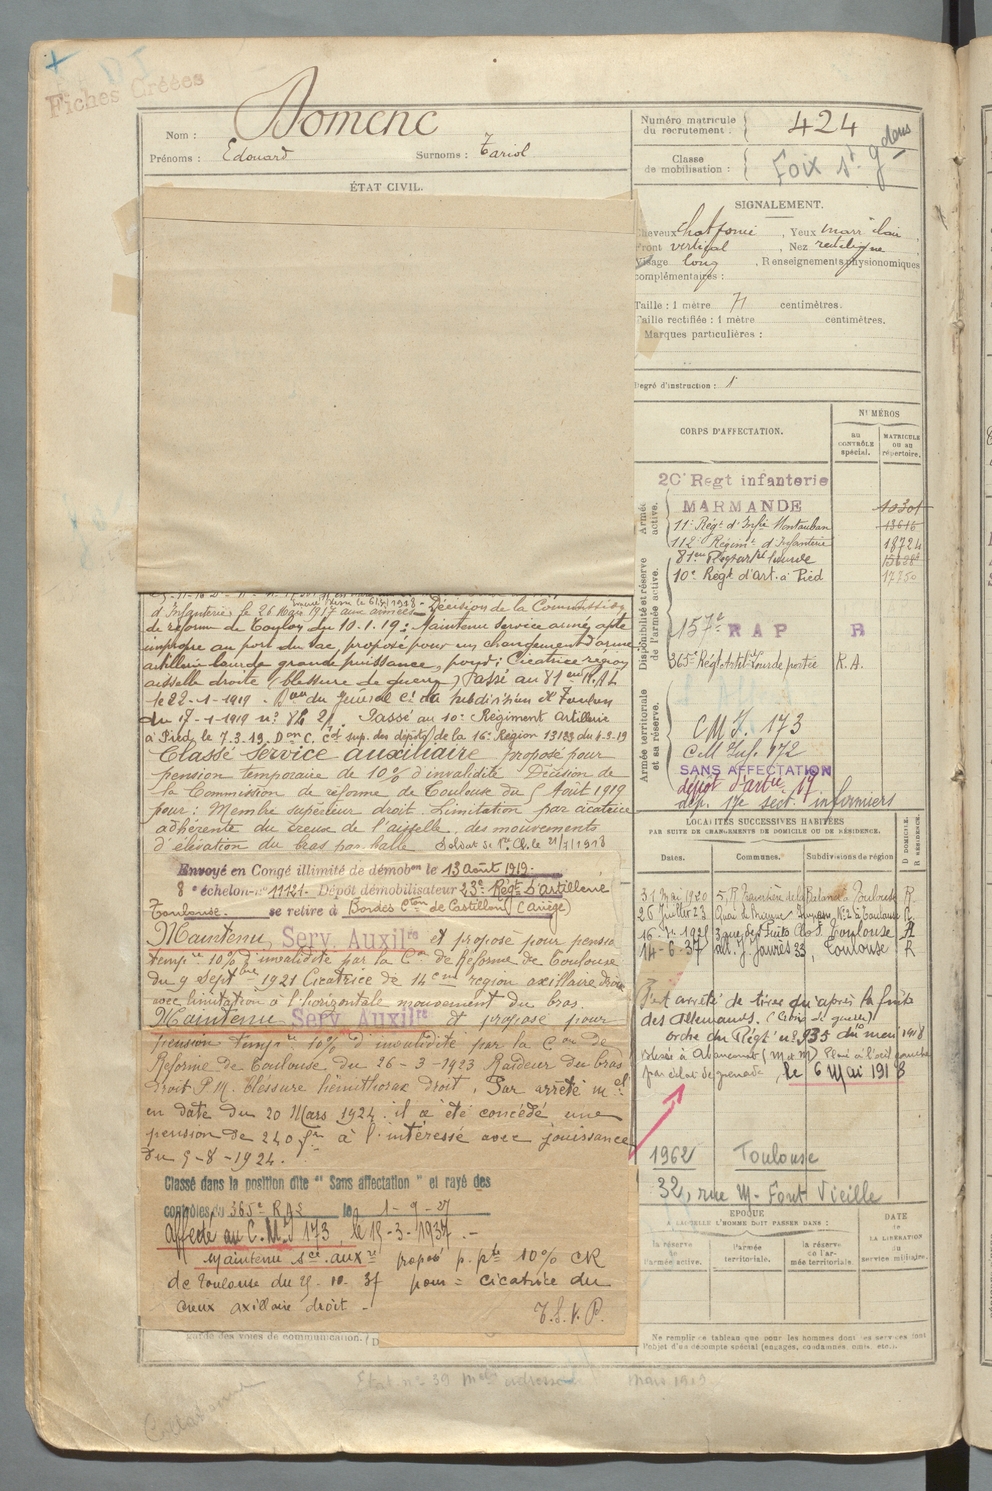 Fiches Créées
Nom : Domenc
Prénoms : Edouard Surnoms : Tariol
Numéro matricule du recrutement : 424
Classe de mobilisation : Foix st gdens
ÉTAT CIVIL.
SIGNALEMENT.
Cheveux , Yeux marr clair ,
Front vertical , Nez rectiligne
Visage long , Renseignements physionomiques
complémentaires :
Taille : 1 mètre 71 centimètres.
Taille rectifiée : 1 mètre centimètres.
Marques particulières :
Degré d'instruction :
CORPS D'AFFECTATION.
NUMÉROS
au CONTRÔLE spécial.
MATRICULE ou au répertoire.
Armée active.
20e Regt infanterie
MARMANDE 10301
11e Régt d'Infie Montauban 13616
112e Régimt d'Infanterie 18724
81em Régt artie lourde
10e Régt d'art. à Pied 17750
Disponibilité et réserve de l'armée active.
157e R A P R
365e Régt Artel Lourde portée R.A.
Armée territoriale et sa réserve.
C M I. 173
C M Inf. 172
SANS AFFECTATION
dépôt d'artie 17
dép. 17e sect. infirmiers
d'Infanterie le 26 Mars 1917 aux armées - Décision de la Commission
de réforme de Toulon du 10.1.19 : Maintenu service armé apte
impropre au port du sac, proposé pour un changement d'arme
artillerie lourde grande puissance, pour : Cicatrice region
aisselle droite (blessure de guerre) Passé au 81em R.A.L
le 22-1-1919 . Don du Général Ct la Subdivision de Toulon
du 17-1-1919 no Passé au 10e Régiment Artillerie
à Pied le 7.3.19. Don C. sup. des dépôts de la 16e Région 13193 du 4-3-19
Classé Service auxiliaire proposé pour
pension temporaire de 10% d'invalidité Décision de
la Commission de réforme de Toulouse du 5 Août 1919
pour : Membre supérieur droit. Limitation par cicatrice
adhérente du creux de l'aisselle, des mouvements
d'élévation du bras par balle . Soldat de 1re Cl. le 21/7/1918
Envoyé en Congé illimité de démobon le 13 Août 1919.
8e échelon - no 11121. Dépôt démobilisateur 23e Régt d'artillerie
Toulouse. se retire à Bordes Cton de Castillon (Ariège)
Maintenu Serv. Auxilre et proposé pour pension
tempre 10% d'invalidité par la Con de Réforme de Toulouse
du 9 Septbre 1921 Cicatrice de 14 cm region axillaire droite
avec limitation à l'horizontale mouvement du bras.
Maintenu Serv. Auxilre et proposé pour
pension tempre 10% d'invalidité par la Con de
Réforme de Toulouse du 26-3-1923 Raideur du bras
droit P.M. Blessure hémithorax droit. Par arrêté mel
en date du 20 Mars 1924 il a été concédé une
pension de 240 frs à l'intéressé avec jouissance
du 5-8-1924.
Classé dans la position dite " Sans affectation " et rayé des
contrôles du 365e RAL le 1-9-27
Affecté au C.M.I 173, le 15-3-1937 .-
Maintenu sce auxre proposé p. pte 10% CR
de Toulouse du 10.37 pour = cicatrice du
creux axillaire droit -
T.S.V.P.
garde des voies de communication.
LOCALITÉS SUCCESSIVES HABITÉES
PAR SUITE DE CHANGEMENTS DE DOMICILE OU DE RÉSIDENCE.
Dates. Communes. Subdivisions de région D. DOMICILE. R. RÉSIDENCE.
31 Mai 1920 5, R Traversière de la Balance Toulouse R
26 Juillet 23 Quai de No 2 à Toulouse R
Toulouse R
14-6-37 all. J. Jaurès 33, Toulouse R
S'est arrêté de tirer qu'après la fuite
des Allemands. (Croix de guerre)
ordre du Régt no 935 du mai 1918
Blessé à Abancourt (M et M) Plaie à l'œil gauche
par éclat de grenade, le 6 Mai 1918
1962 Toulouse
32, rue M- Font Vieille
ÉPOQUE
A LAQUELLE L'HOMME DOIT PASSER DANS :
la réserve de l'armée active. l'armée territoriale. la réserve de l'armée territoriale.
DATE de LA LIBÉRATION du service militaire.
Ne remplir ce tableau que pour les hommes dont les services font
l'objet d'un décompte spécial (engagés, condamnés, omis, etc.).
Etat no 39 adresse mars 1919